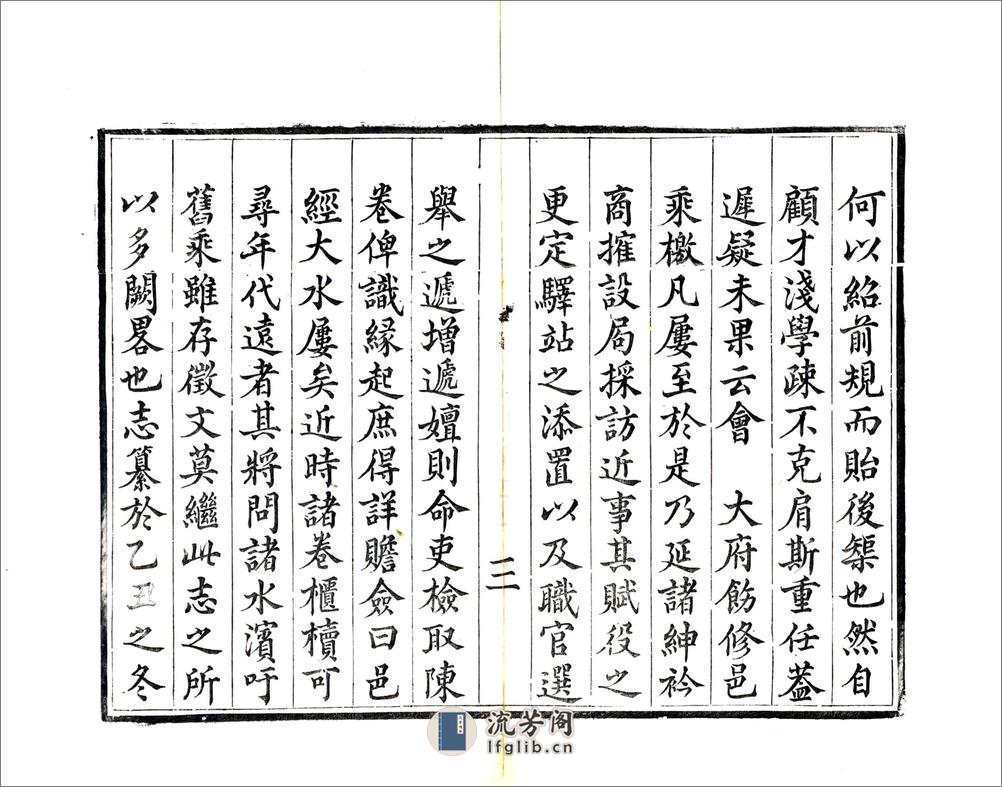 何以紹前規而貽後榘也然自
顧才淺學疎不克肩斯重任蓋
遲疑未果云會　大府飭修邑
乘檄凡屢至於是乃延諸紳衿
商搉設局採訪近事其賦役之
更定驛站之添置以及職官選
三
舉之遞增遞嬗則命吏檢取陳
卷俾識緣起庶得詳贍僉曰邑
經大水屢矣近時諸卷櫃櫝可
尋年代遠者其將問諸水濱吁
舊乘雖存徵文莫繼此志之所
以多闕畧也志纂於乙丑之冬
流芳阁
lfglib.cn